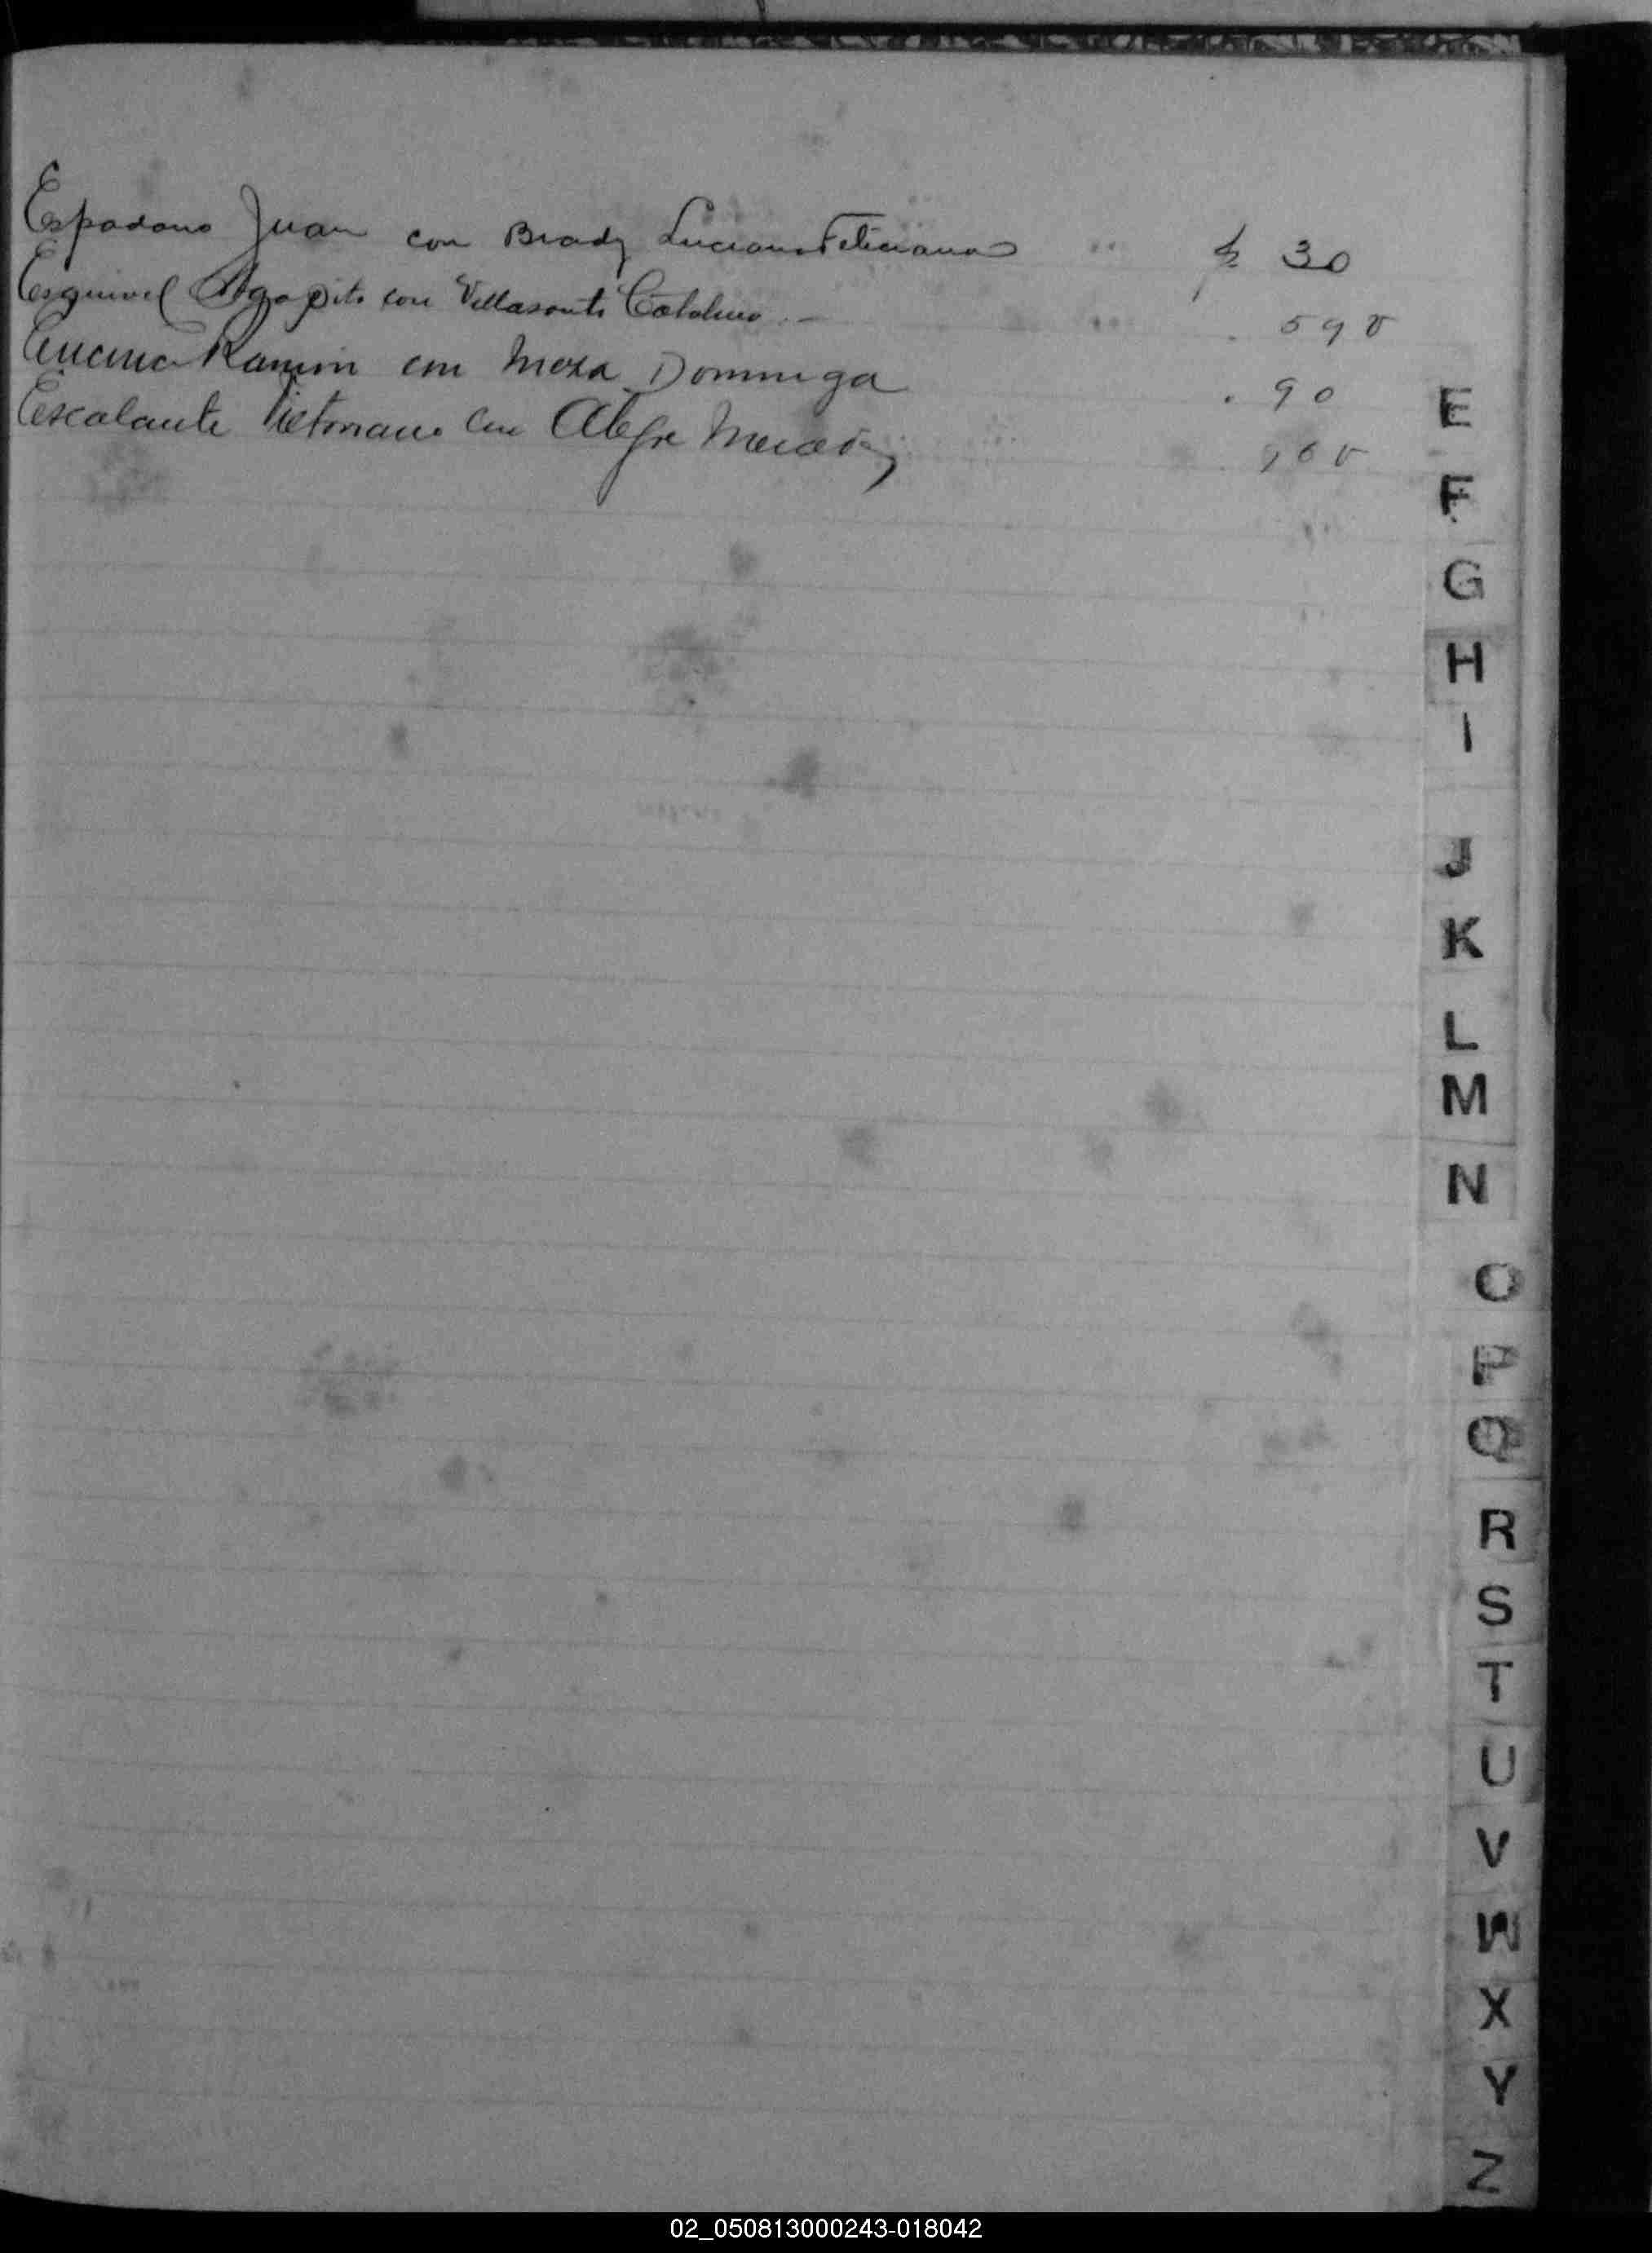 Espadano Juan con Brady Luciana Feliciana f. 30
Esquivel Agapito con Villasanti Catalina . 59v
Encina Ramón con Meza Dominga . 90
Escalante Victoriano con Alegre Mercedes 96v
E
F
G
H
I
J
K
L
M
N
O
P
Q
R
S
T
U
V
W
X
Y
Z
02_050813000243-018042